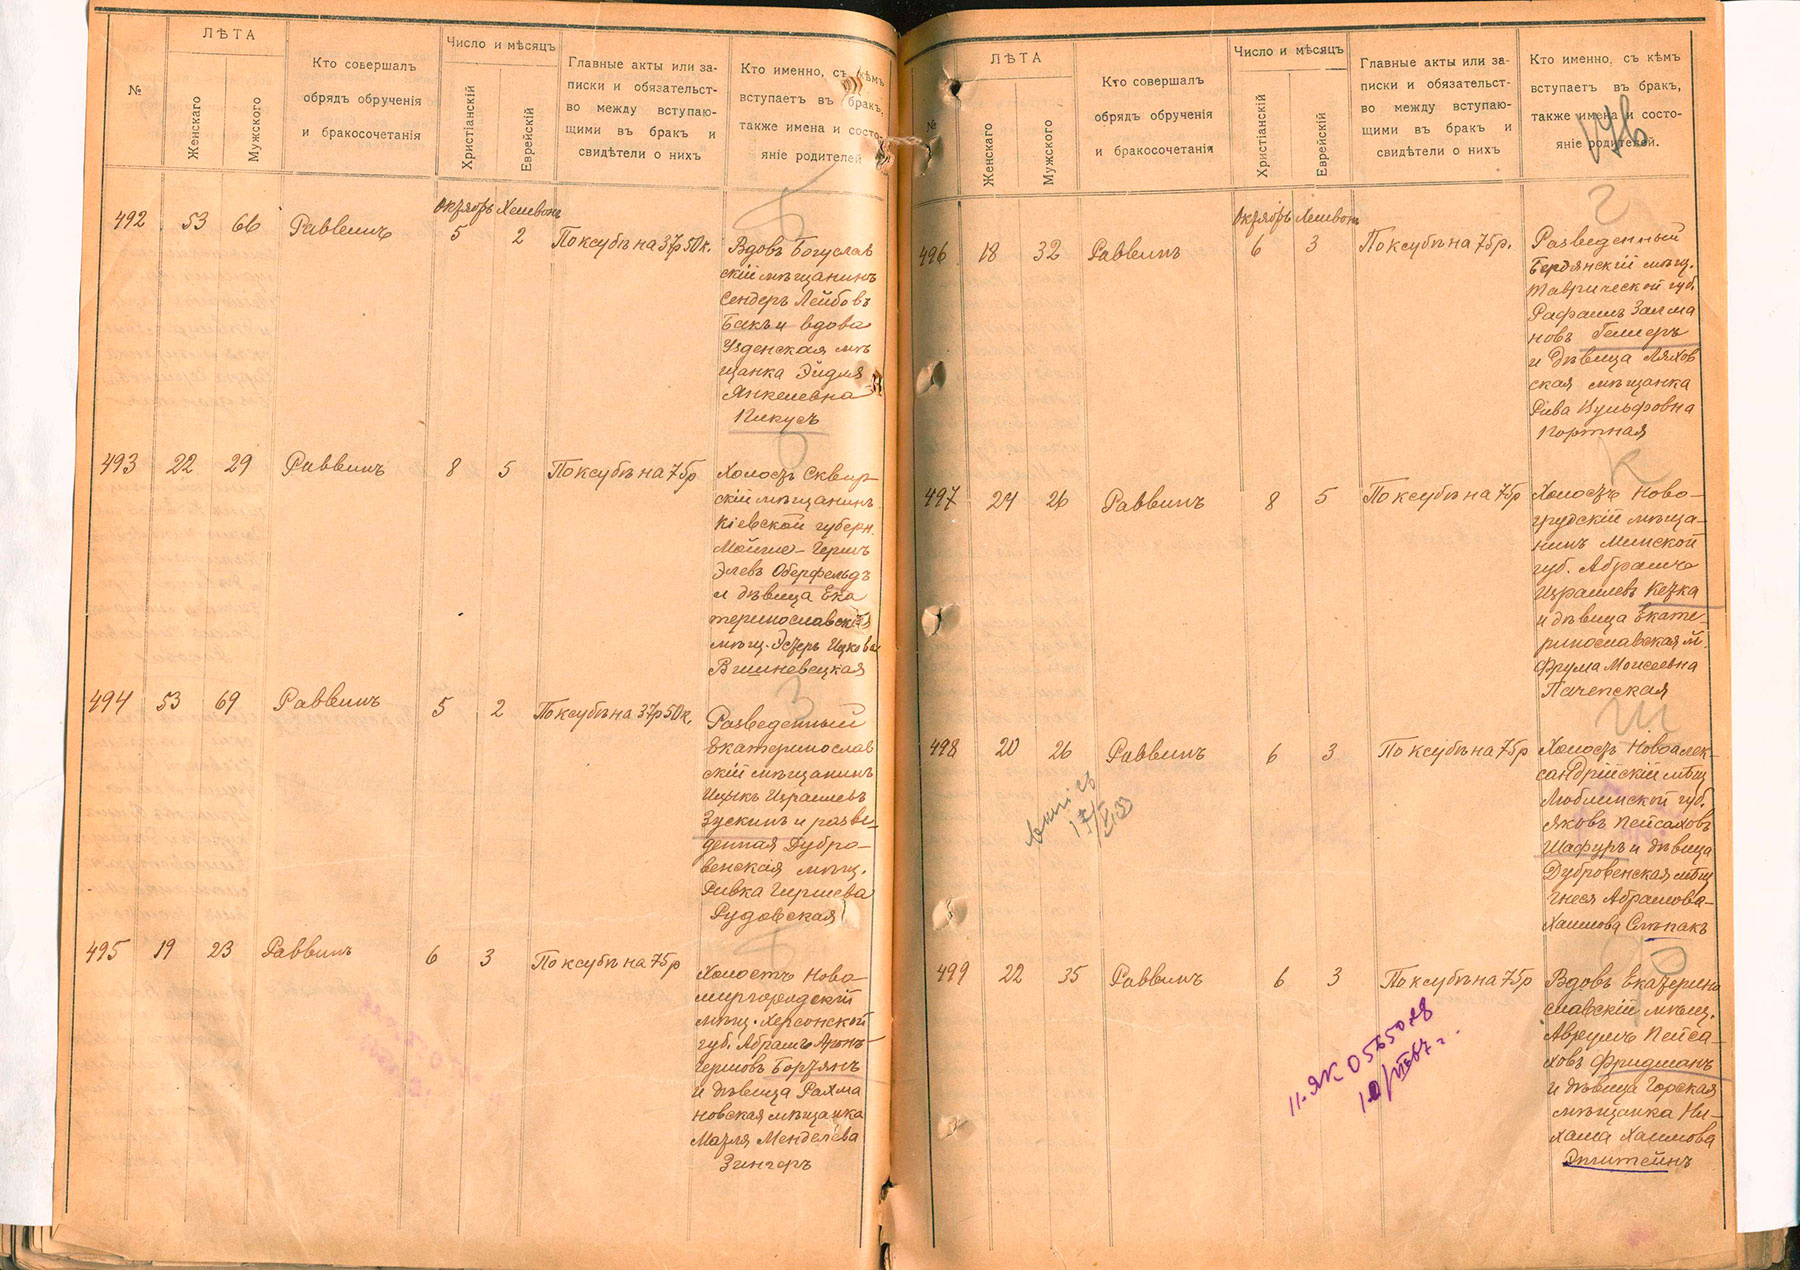 №
ЛѢТА
Женскаго
Мужского
Кто совершалъ
обрядъ обрученія
и бракосочетанія
Число и мѣсяцъ
Христіанскій
Еврейскій
Главные акты или за-
писки и обязательст-
во между вступаю-
щими въ бракъ и
свидѣтели о нихъ
Кто именно, съ кѣмъ
вступаетъ въ бракъ,
также имена и состо-
яніе родителей
492 53 66 Раввинъ
Октябрь Хешвонъ
5 2 По ксубѣ на 37р 50к.
Вдовъ Богуслав
скій мѣщанинъ
Сендеръ Лейбовъ
Бакъ и вдова
Узденская мѣ
щанка Эйдля
Янкелевна
Пикусъ
493 22 29 Раввинъ 8 5 По ксубѣ на 75р
Холостъ Сквир-
скій мѣщанинъ
Кіевской губерн.
Мойше-Герш
Элевъ Оберфельдъ
и дѣвица Ека
теринославская
мѣщ. Эстеръ Ицкова
Вишневецкая
494 53 69 Раввинъ 5 2 По ксубѣ на 37р 50к.
З
Разведенный
Екатеринослав
скій мѣщанинъ
Ицыкъ Израилевъ
Зускинъ и разве-
денная Дубро-
венская мѣщ.
Ривка Гиршева
Рудовская
495 19 23 Раввинъ 6 3 По ксубѣ на 75р
Холостъ Ново-
миргородскій
мѣщ. Херсонской
губ. Абрамъ Аронъ-
Гершовъ
и дѣвица Рахма
новская мѣщанка
Мазля Менделева
Зингеръ
№
ЛѢТА
Женскаго
Мужского
Кто совершалъ
обрядъ обрученія
и бракосочетанія
Число и мѣсяцъ
Христіанскій
Еврейскій
Главные акты или за-
писки и обязательст-
во между вступаю-
щими въ бракъ и
свидѣтели о нихъ
Кто именно, съ кѣмъ
вступаетъ въ бракъ,
также имена и состо-
яніе родителей.
Г
496 18 32 Раввинъ
Октябрь Хешвонъ
6 3 По ксубѣ на 75р.
Разведенный
Бердянскій мѣщ.
Таврической губ.
Рафаилъ Залма
новъ Гелшеръ
и дѣвица Ляхов
ская мѣщанка
Рива Вульфовна
Портная
К
497 24 26 Раввинъ 8 5 По ксубѣ на 75р
Холостъ Ново-
грудскій мѣща-
нинъ Минской
губ. Абрамъ
Израилевъ Кезка
и дѣвица Екате-
ринославская м.
Фрума Моисеевна
Пачепская
Ш
498 20 26 Раввинъ 6 3 По ксубѣ на 75р
Холостъ Новоалек-
сандрійскій мѣщ
Люблинской губ.
Яковъ Пейсаховъ
Шафуръ и дѣвица
Дубровенская мѣщ
Гнеся Абрамова-
Хаимова Слѣпакъ
Ф
499 22 35 Раввинъ 6 3 По ксубѣ на 75р
Вдовъ Екатерино
славскій мѣщ.
Аврумъ Пейса-
ховъ Фридманъ
и дѣвица Горская
мѣщанка Ни-
хама Хаимова
Эпштейнъ
II-ЯК 0565028